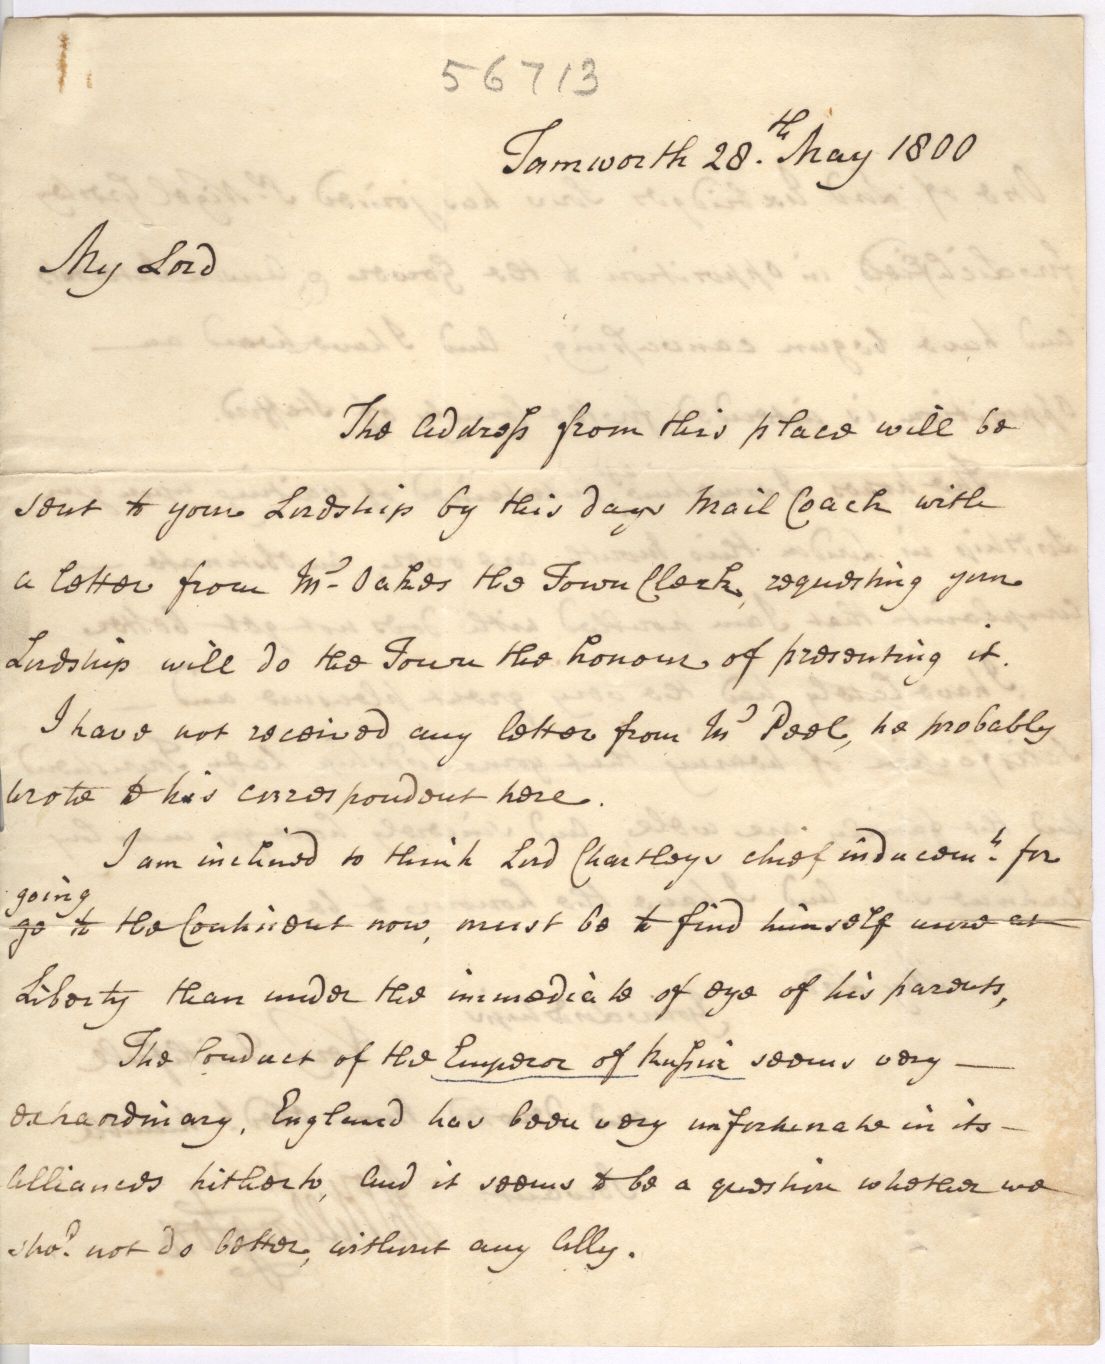 56713
Tamworth 28.th May 1800
My Lord
The Address from this place will be
sent to your Lordship by this days Mail Coach with
a letter from Mr Oakes the Town Clerk, requesting your
Lordship will do the Town the honour of presenting it.
I have not received any letter from Mr Peel, he probably
wrote to his correspondent here.
I am inclined to think Lord Chartleys chief inducemt. for
going
go to the Continent now, must be to find himself more at
Liberty than under the immediate of eye of his parents,
The Conduct of the Emperor of Russia seems very —
extraordinary, England has been very unfortunate in its —
Alliances hitherto, And it seems to be a question whether we
shod. not do better, without any Ally.